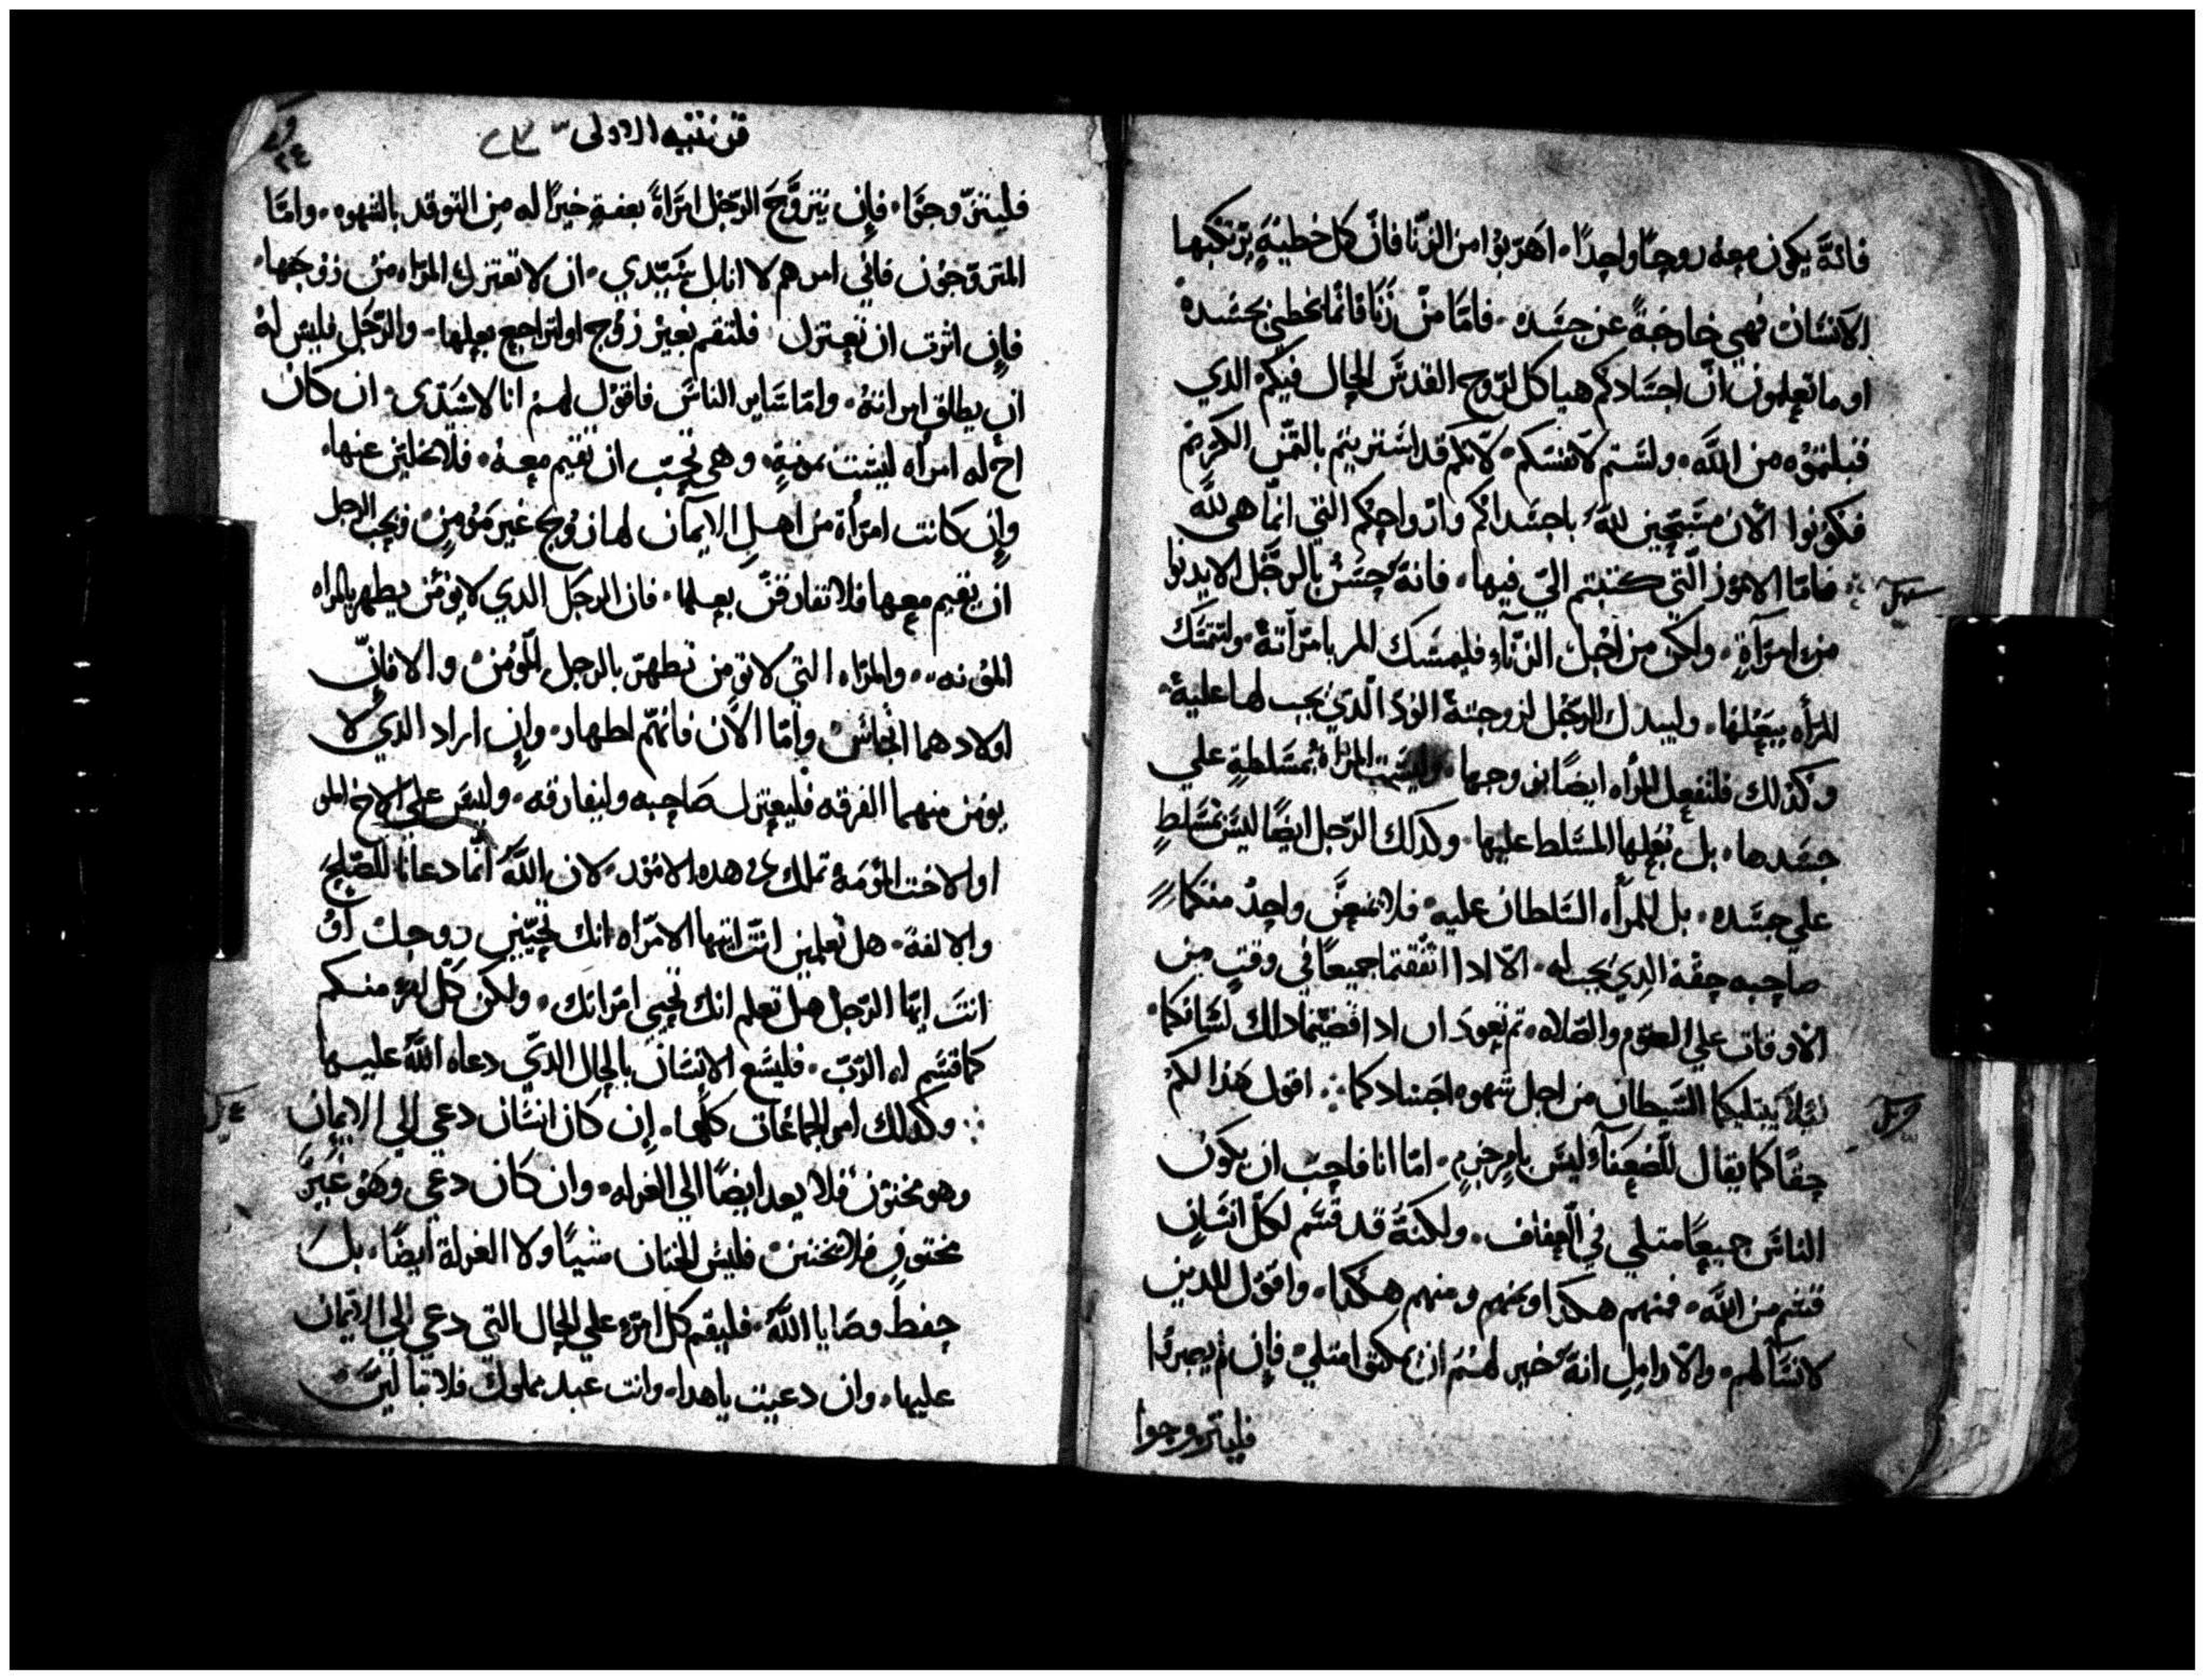 فانّه يكون معه روحًا واحدًا. اهربوا من الزنا فانّ كل خطيةٍ يرتكبها
الانسان فهي خارجةً عن جسَده. فامّا من زَنَا فانّما يخطى بجسَده
او ما تعلمون انّ اجسَادكم هياكل لروح القدسَ الحال فيكم الذي
قبلتموه من اللَّه. ولستم لانفسَكم. لانكم قد اشتريتم بالثمن الكريم
فكونوا الان مسَبّحين للّه باجسَدادكم وارواحكم التي انّما هى للّه
فامّا الامور الّتي كتبتم اليّ فيها. فانهُ حسَنُ بالرجَل الا يدنوا
من امرَاةٍ. ولكن من اجل الزناء فليمسَك المر بامرَاتهُ. ولتتمسَك
المرأه ببَعْلها. وليبدل الرجُل لزوجتهُ الودّ الّذي يجب لها عليهُ.
وكذلك فلتفعل المرأه ايضًا بزوجها. وليسَت المراهُ بمسَلطةٍ علي
جسَدها. بل بَعْلها المسَلط عليها. وكذلك الرّجل ايضًا ليسَ بمسَلطٍ
علي جسَده. بل المرأه السَلطان عليه. فلا يمنعَنَّ واحدٌ منكما
صاحبه حقهُ الذِي يجب له. الّا اذا اتّفقتما جميعًا في وقتٍ من
الاوقات علي الصّوم والصّلاه. ثم تعودَان اذا قضيتما ذلك لشَانكما.
لئلا يبتليكما الشَيطان من اجل شهوه اجسَادكما. اقول هَذا لكم
حقًا كما يقال للضعفآء وليسَ بامرٍ جزمٍ. امّا انا فاحبّ ان يكون
الناسَ جميعًا مثلي في العفاف. ولكنهُ قد قسَم لكلّ انسَانٍ
قسَم من اللَّه. فمنهم هكدا ومنهم ومنهم هكذا. واقول للدين
لا نسَآ لهم. والارامِل انهُ خير لهم ان يمكثوا مثلي. فإن لم يصبروا
فليتزوجوا
قرنتيه الاولى
فليتزّوجوَا. فإن يتزوَّجَ الرّجل امرَاةً بعفةٍ خيرًا له مِن التوقد بالشهوه. وامّا
المتزوّجون فاني امرهم لا انا بل سَيّدي. ان لا تعتزل المرَاه من زوجها.
فإن اثرت ان تعتزل فلتقم بغير زوج او لتراجع بعلها. والرّجل فليسَ لهُ
ان يطلق امراتهُ. وامّا سَاير الناسَ فاقول لهم انا لا سَيّدى. ان كان
اخ له امرأه ليسَت بمومنةٍ. وهى تحبّ ان تقيم معهُ. فلا يخلينّ عنها.
وإن كانت امرَأة من اهل الايمآن لها زوج غير مَؤمِن ويحب الرجل
ان يقيم معها فلا تفارقنّ بعلها. فان الرجَل الدي لا يؤمن يطهر بالمراه
المؤمنه.. والمرَاه التي لا تؤمن تطهر بالرجل المؤمن والا فانّ
اولادهما انجاسَ وامّا الآن فانهّم اطهار. وإن اراد الذي لا
يومن منهما الفرقه فليعتزل صَاحبه وليفارقه. وليسَ علي الاخ المو
او الاخت المؤمنهُ تملك في هده الامور. لان اللَّه انّما دعانا للصّلح
والالفهَ. هل تعلمين انت ايتها الامرَاه انك تحيّين زوجك أو
انتَ ايّها الرّجل هل تعلم انك تحيي امرَاتك. ولكن كلّ امرء منكم
كما قسَم له الرّبّ. فليسَع الانسَان بالحال الذيّ دعاه اللَّهُ عليها
وكذلك امر الجماعات كلّها. إن كان انسَان دعي الي الايمان
وهو مختون فلا يعد ايضًا الي الغرله. وان كان دعى وهَو غيرَ
مختونٍ فلا يختتن فليسَ الختان شيًا ولا الغرلة ايضًا. بل
حِفظ وصَايا اللَّهُ. فليقم كل امرَء علي الحال التي دعي الي الايّمان
عليها. وان دعيت ياهدا. وانت عبد مملوك فلا تباليَنّ